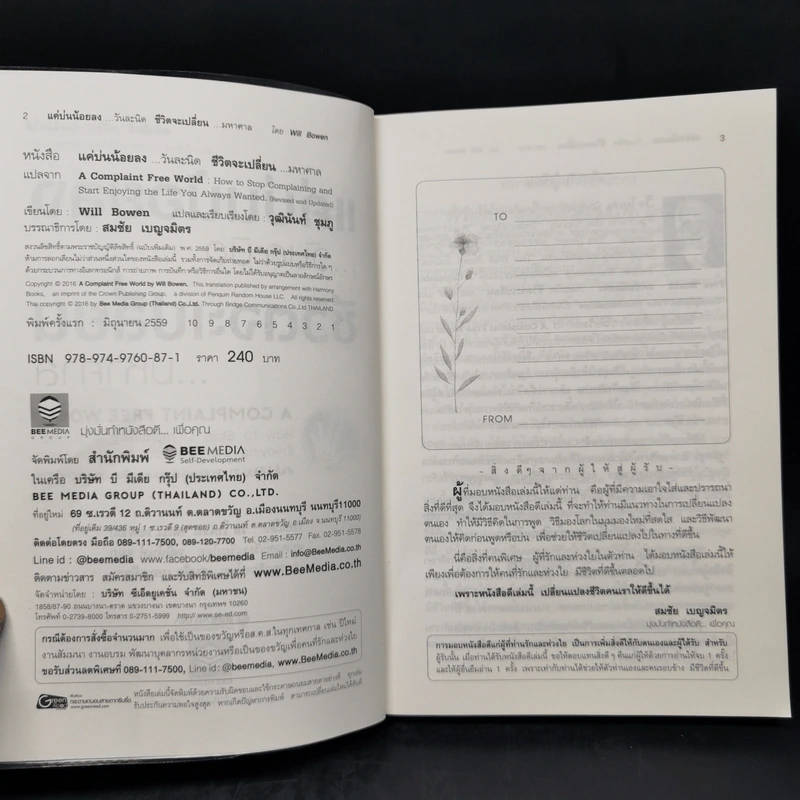 2 แค่บ่นน้อยลง ...วันละนิด ชีวิตจะเปลี่ยน ...มหาศาล โดย Will Bowen
หนังสือ แค่บ่นน้อยลง ...วันละนิด ชีวิตจะเปลี่ยน ...มหาศาล
แปลจาก A Complaint Free World : How to Stop Complaining and
Start Enjoying the Life You Always Wanted. (Revised and Updated)
เขียนโดย : Will Bowen แปลและเรียบเรียงโดย : วุฒินันท์ ชุมภู
บรรณาธิการโดย : สมชัย เบญจมิตร
สงวนลิขสิทธิ์ตามพระราชบัญญัติลิขสิทธิ์ (ฉบับเพิ่มเติม) พ.ศ. 2559 โดย บริษัท บี มีเดีย กรุ๊ป (ประเทศไทย) จำกัด
ห้ามการลอกเลียนไม่ว่าส่วนหนึ่งส่วนใดของหนังสือเล่มนี้ รวมทั้งการจัดเก็บถ่ายทอด ไม่ว่าด้วยรูปแบบหรือวิธีการใด ๆ
ด้วยกระบวนการทางอิเลกทรอนิกส์ การถ่ายภาพ การบันทึก หรือวิธีการอื่นใด โดยไม่ได้รับอนุญาตเป็นลายลักษณ์อักษร
Copyright © 2016 A Complaint Free World by Will Bowen. This translation published by arrangement with Harmony
Books, an imprint of the Crown Publishing Group. a division of Penguin Random House LLC. All rights reserved.
Thai copyright © 2016 by Bee Media Group (Thailand) Co.,Ltd. Through Bridge Communications Co.,Ltd.THAILAND
พิมพ์ครั้งแรก : มิถุนายน 2559 10 9 8 7 6 5 4 3 2 1
ISBN 978-974-9760-87-1 ราคา 240 บาท
BEE MEDIA
GROUP
มุ่งมั่นทำหนังสือดี... เพื่อคุณ
จัดพิมพ์โดย สำนักพิมพ์ BEE MEDIA
Self-Development
ในเครือ บริษัท บี มีเดีย กรุ๊ป (ประเทศไทย) จำกัด
BEE MEDIA GROUP (THAILAND) CO.,LTD.
ที่อยู่ใหม่ 69 ซ.เรวดี 12 ถ.ติวานนท์ ต.ตลาดขวัญ อ.เมืองนนทบุรี นนทบุรี 11000
(ที่อยู่เดิม 39/436 หมู่ 1 ซ.เรวดี 9 (สุดซอย) ถ.ติวานนท์ ต.ตลาดขวัญ อ.เมือง จ.นนทบุรี 11000)
ติดต่อโดยตรง มือถือ 089-111-7500, 089-120-7700 Tel. 02-951-5577 Fax. 02-951-5578
Line id : @beemedia www.facebook/beemedia Email : info@BeeMedia.co.th
ติดตามข่าวสาร สมัครสมาชิก และรับสิทธิพิเศษได้ที่ www.BeeMedia.co.th
จัดจำหน่ายโดย : บริษัท ซีเอ็ดยูเคชั่น จำกัด (มหาชน)
1858/87-90 ถนนบางนา-ตราด แขวงบางนา เขตบางนา กรุงเทพฯ 10260
โทรศัพท์ 0-2739-8000 โทรสาร 0-2751-5999 http://www.se-ed.com
กรณีต้องการสั่งซื้อจำนวนมาก เพื่อใช้เป็นของขวัญหรือส.ค.ส.ในทุกเทศกาล เช่น ปีใหม่
งานสัมมนา งานอบรม พัฒนาบุคลากรหน่วยงานหรือเป็นของขวัญเพื่อคนที่รักและห่วงใย
ขอรับส่วนลดพิเศษที่ 089-111-7500, Line id : @beemedia, www.BeeMedia.co.th
Green
www.greenread.com
3
TO
FROM
- สิ่งดีๆจากผู้ให้สู่ผู้รับ -
ผู้ที่มอบหนังสือเล่มนี้ให้แด่ท่าน คือผู้ที่มีความเอาใจใส่และปรารถนา
สิ่งที่ดีที่สุด จึงได้มอบหนังสือดีเล่มนี้ ที่จะทำให้ท่านมีแนวทางในการเปลี่ยนแปลง
ตนเอง ทำให้มีวิธีคิดในการพูด วิธีมองโลกในมุมมองใหม่ที่สดใส และวิธีพัฒนา
ตนเองให้คิดก่อนพูดหรือบ่น เพื่อช่วยให้ชีวิตเปลี่ยนแปลงไปในทางที่ดีขึ้น
นี่คือสิ่งที่คนพิเศษ ผู้ที่รักและห่วงใยในตัวท่าน ได้มอบหนังสือเล่มนี้ให้
เพียงเพื่อต้องการให้คนที่รักและห่วงใย มีชีวิตที่ดีขึ้นตลอดไป
เพราะหนังสือดีเล่มนี้ เปลี่ยนแปลงชีวิตคนเราให้ดีขึ้นได้
สมชัย เบญจมิตร
มุ่งมั่นทำหนังสือดี... เพื่อคุณ
การมอบหนังสือดีแก่ผู้ที่ท่านรักและห่วงใย เป็นการเพิ่มสิ่งดีให้กับตนเองและผู้ได้รับ สำหรับ
ผู้รับนั้น เมื่อท่านได้รับหนังสือดีเล่มนี้ ขอให้ตอบแทนสิ่งดี ๆ คืนแก่ผู้ให้ด้วยการอ่านให้จบ 1 ครั้ง
และให้ผู้อื่นยืมอ่าน 1 ครั้ง เพราะเท่ากับท่านได้ช่วยให้ตัวท่านเองและคนรอบข้าง มีชีวิตที่ดีขึ้น